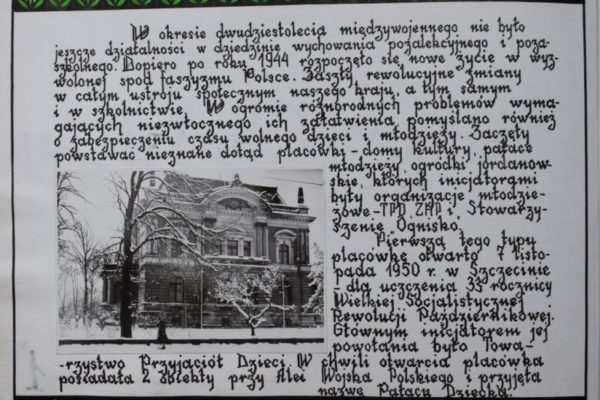 W okresie dwudziestolecia międzywojennego nie było
jeszcze działalności w dziedzinie wychowania pozalekcyjnego i poza-
szkolnego. Dopiero po roku 1944 rozpoczęto się nowe życie w wyz-
wolonej spod faszyzmu Polsce. Zaszły rewolucyjne zmiany
w całym ustroju społecznym naszego kraju, a tym samym
i w szkolnictwie. W ogromie różnorodnych problemów wyma-
gających niezwłocznego ich załatwienia, pomyślano również
o zabezpieczeniu czasu wolnego dzieci i młodzieży. Zaczęły
powstawać nieznane dotąd placówki - domy kultury, pałace
młodzieży, ogródki jordanow-
skie, których inicjatorami
były organizacje młodzie-
żowe - TPD, ZHP i Stowarzy-
szenie Ognisko.
Pierwszą tego typu
placówkę otwarto 7 listo-
pada 1950 r. w Szczecinie
- dla uczczenia 33 rocznicy
Wielkiej Socjalistycznej
Rewolucji Październikowej.
Głównym inicjatorem jej
powołania było Towa-
-rzystwo Przyjaciół Dzieci. W chwili otwarcia placówka
posiadała 2 obiekty przy Alei Wojska Polskiego i przyjęła
nazwę Pałacu Dziecka.
1